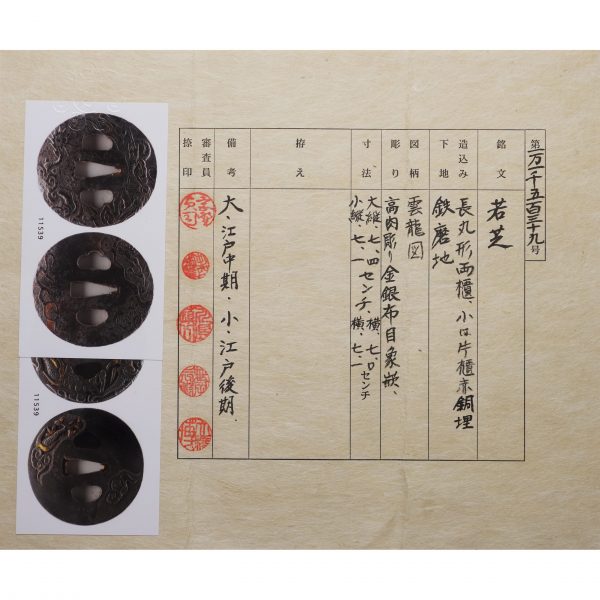 第一万一千五百三十九号
銘文 若芝
造込み 長丸形両櫃、小は片櫃赤銅埋
下地 鉄磨地
図柄 雲龍図
彫り 高肉彫り金銀布目象嵌、
寸法 大縦、七、四センチ、横、七、〇センチ
小縦、七、一 横、七、一
拵え
備考 大・江戸中期・小・江戸後期.
審査員
捺印
11539
11539